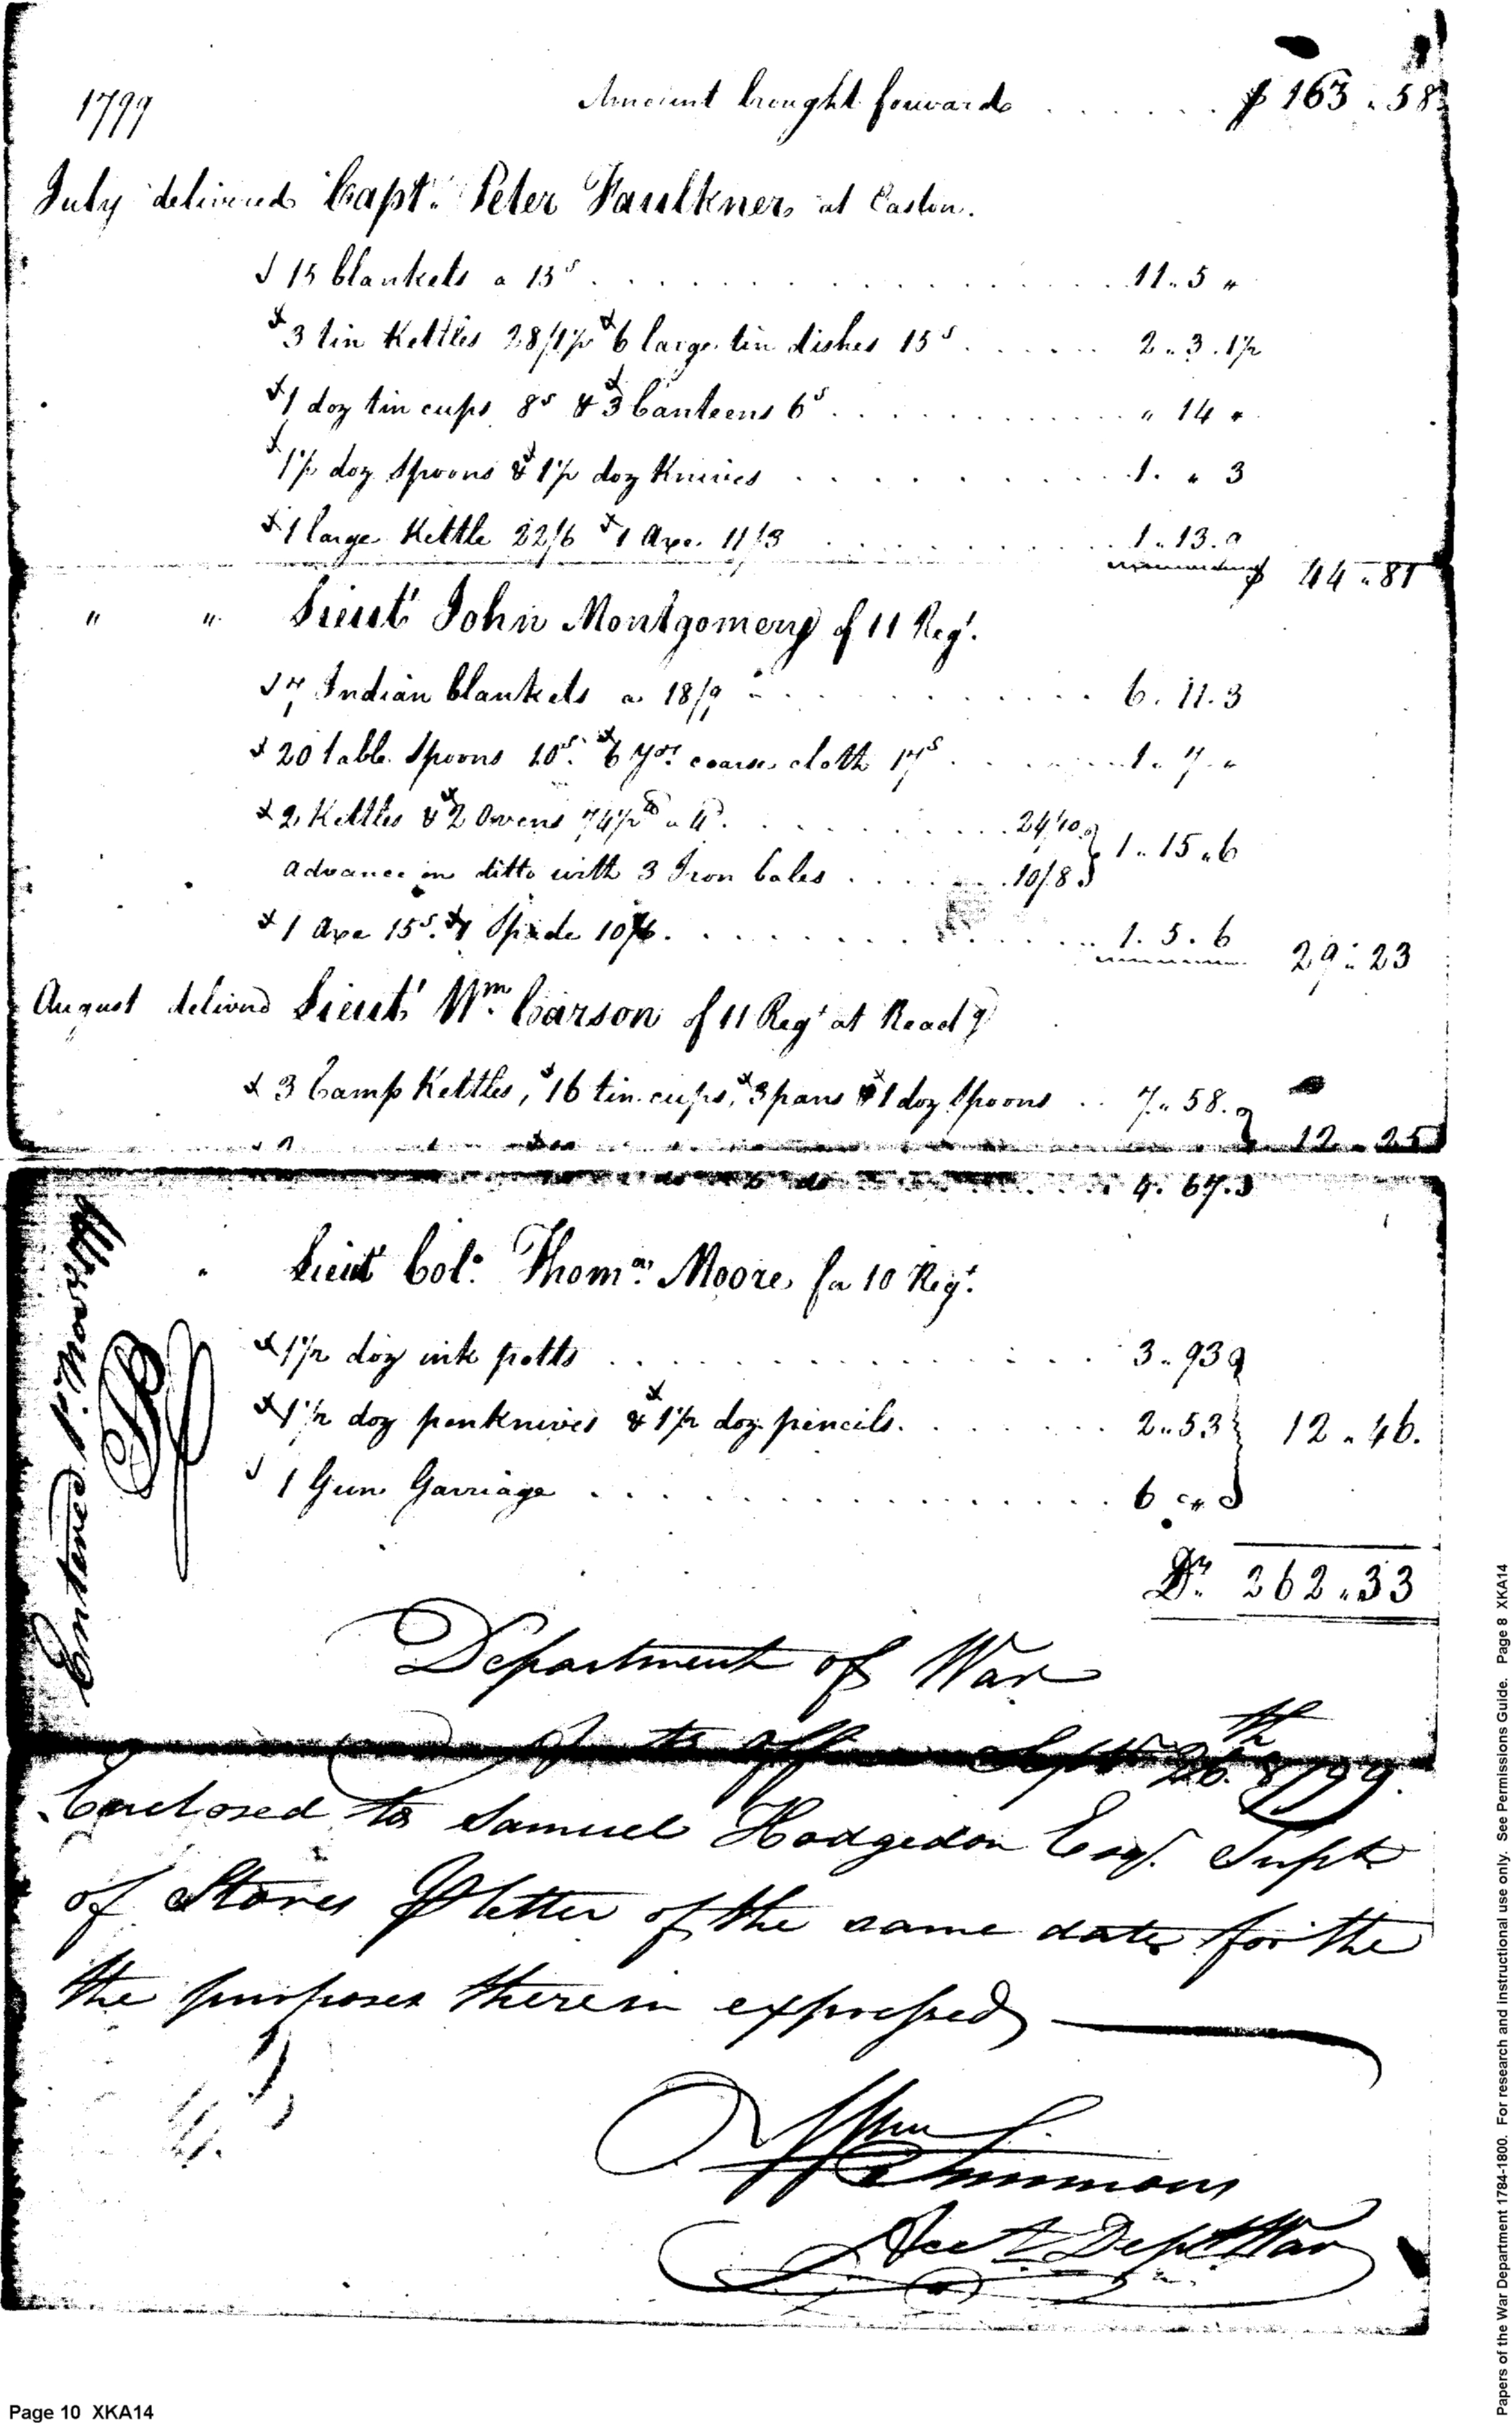 1799 Amount brought forward . . . . . . $ 163 . 58
July delivered Capt. Peter Faulkner at Easton.
15 blankets a 15s . . . . . . 11 . 5 "
3 tin Kettles 28/1½ 6 large tin dishes 15s . . . . . . 2 . 3 . 1½
1 doz tin cups 8s & 3 Canteens 6s . . . . . . " 14 "
1½ doz Spoons & 1½ doz Knives . . . . . . 1 . " 3
1 large Kettle 22/6 1 Axe 11/3 . . . . . . 1 . 13 . 9
$ 44 . 81
" " Lieut John Montgomery of 11 Regt.
7 Indian blankets a 18/9 . . . . . . 6 . 11 . 3
20 table Spoons 10s. 6 yds coarse cloth 17s . . . . . . 1 . 7 . "
2 Kettles & 2 Ovens 74½ lb a 4d . . . . . . 24/10
1 . 15 . 6
advance on ditto with 3 Iron bales . . . . . . 10/8
1 Axe 15s. 1 Spade 10/6 . . . . . . 1 . 5 . 6 29 . 23
August deliverd Lieut Wm. Carson of 11 Regt at Readg
3 Camp Kettles, 16 tin cups, 3 pans & 1 doz Spoons . . 7 . 58
12 . 25
do do . . . 4 . 67
Lieut Col. Thomas Moore for 10 Regt.
1½ doz ink potts . . . . . . 3 . 93
1½ doz penknives & 1½ doz pencils . . . . . . 2 . 53 12 . 46.
1 Gun Garriage . . . . . . 6 . "
Drs. 262 . 33
Entered P. Novr 1799
Department of War
Accts office Septr 26th 1799.
Enclosed to Samuel Hodgdon Esqr. Supt
of Stores P letter of the same date for the
the purposes therein expressed
Wm Simmons
Acct Dept War
Page 10 XKA14
Papers of the War Department 1784-1800. For research and instructional use only. See Permissions Guide. Page 8 XKA14